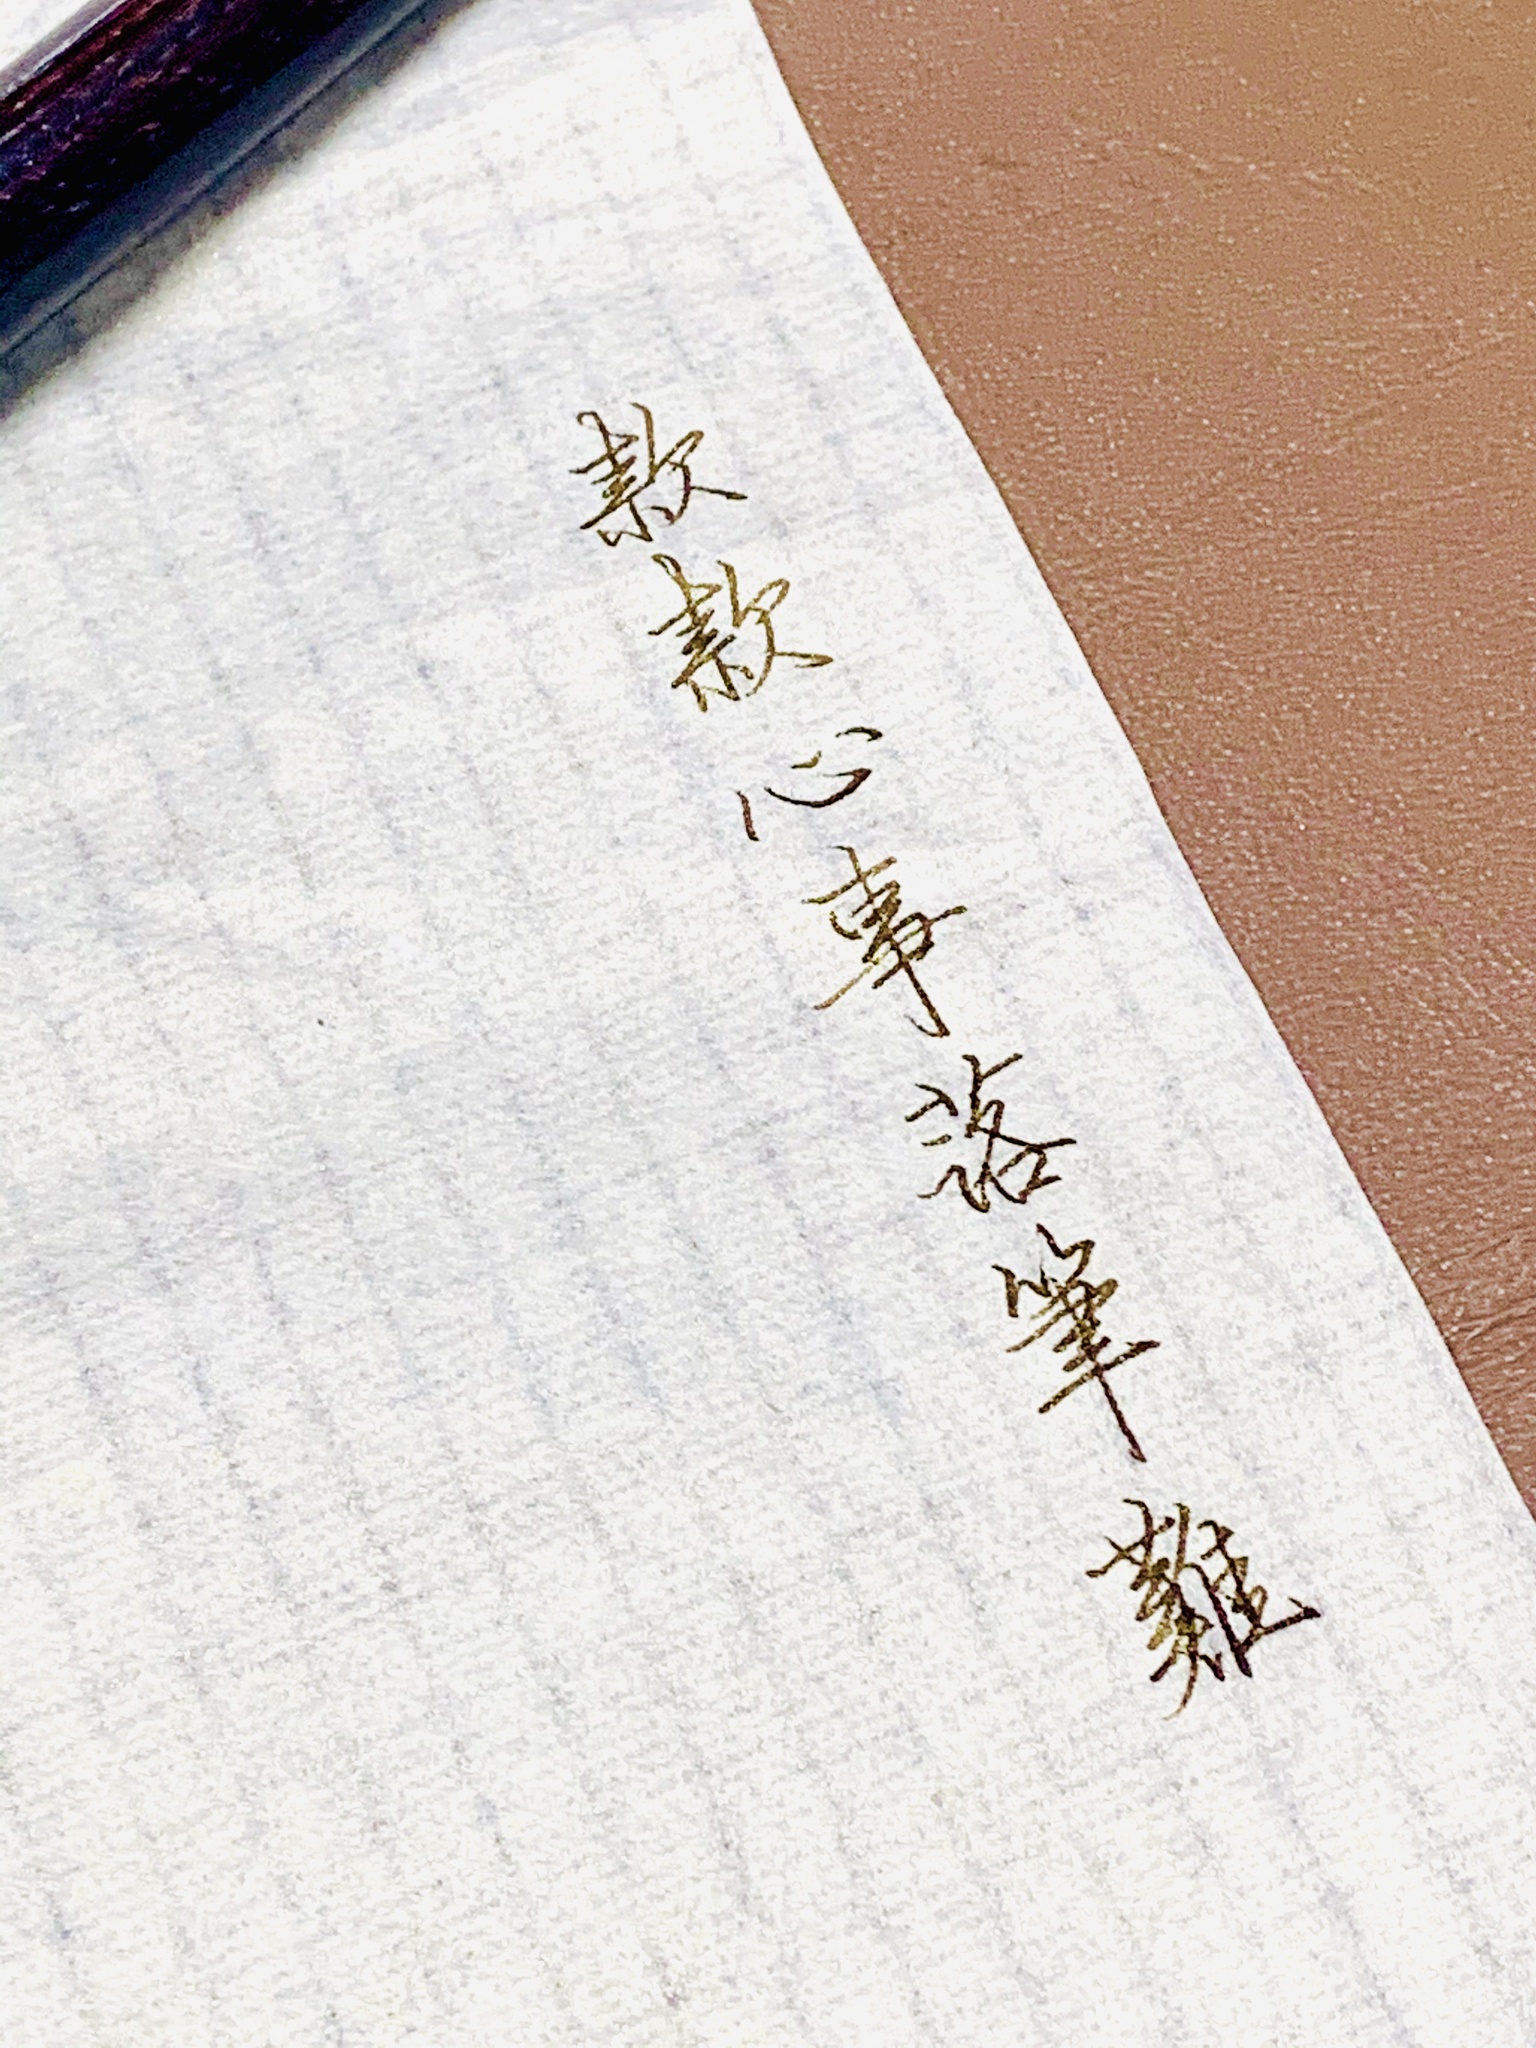 款款心事落筆難